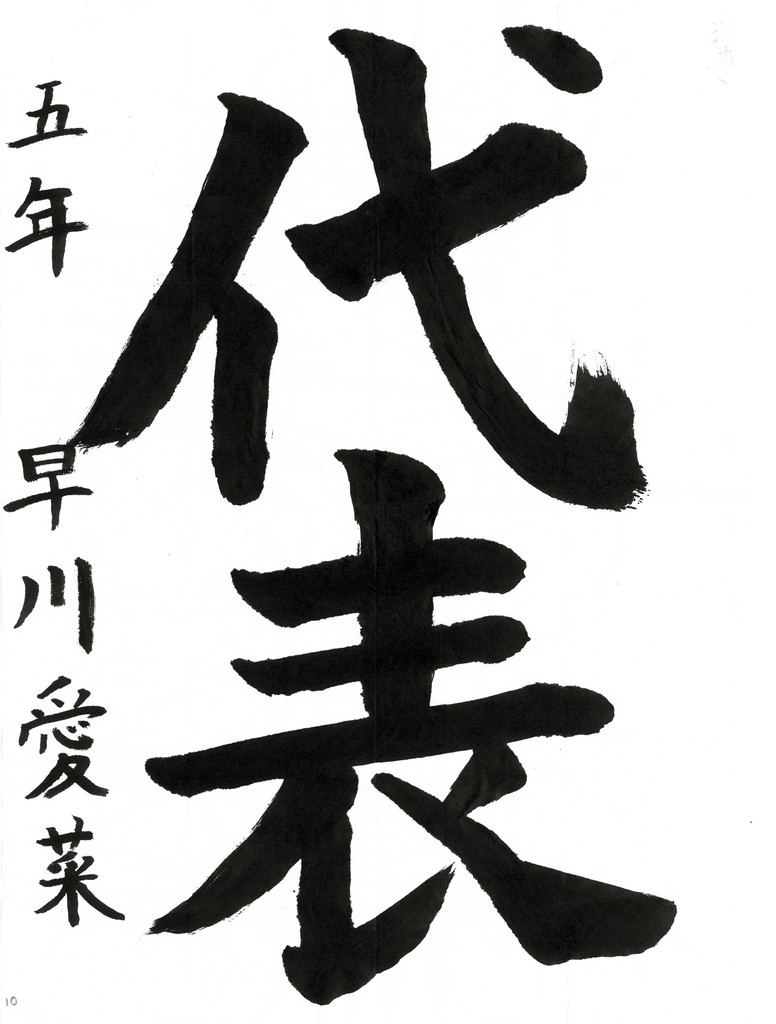 代表
五年 早川愛菜
10